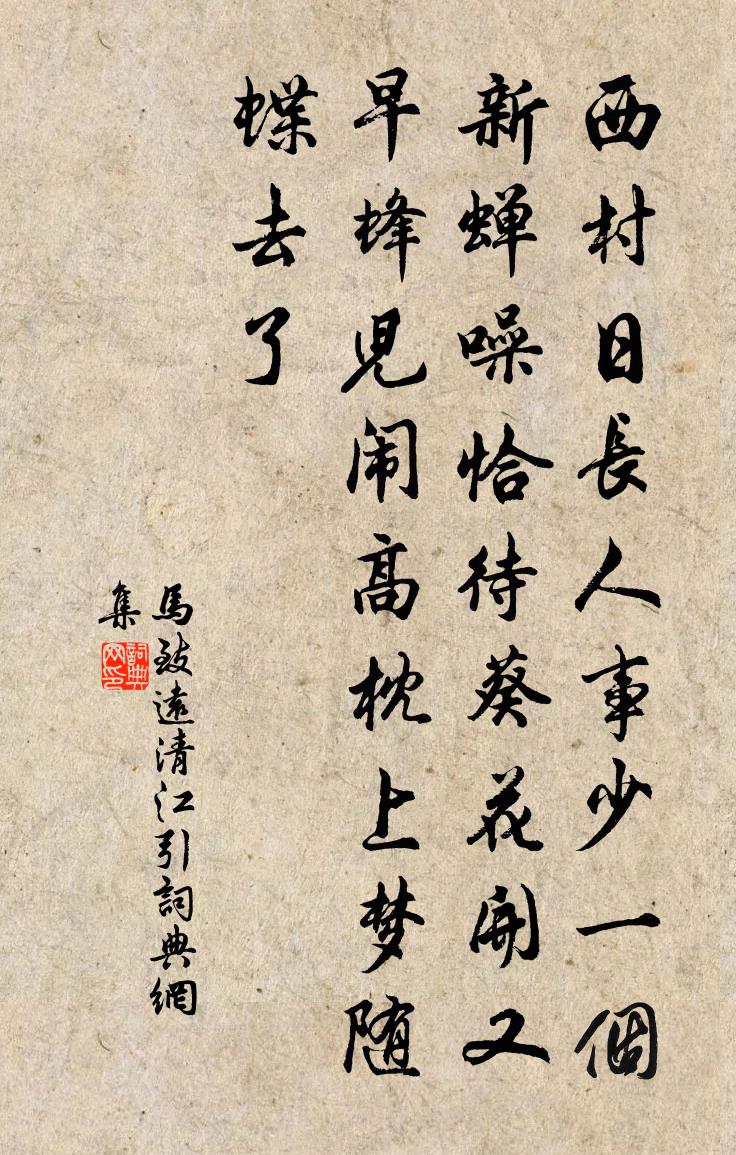 西村日長人事少一個
新蝉噪恰待葵花開又
早蜂兒闹高枕上梦随
蝶去了
馬致遠清江引詞典網
集
詞典网印